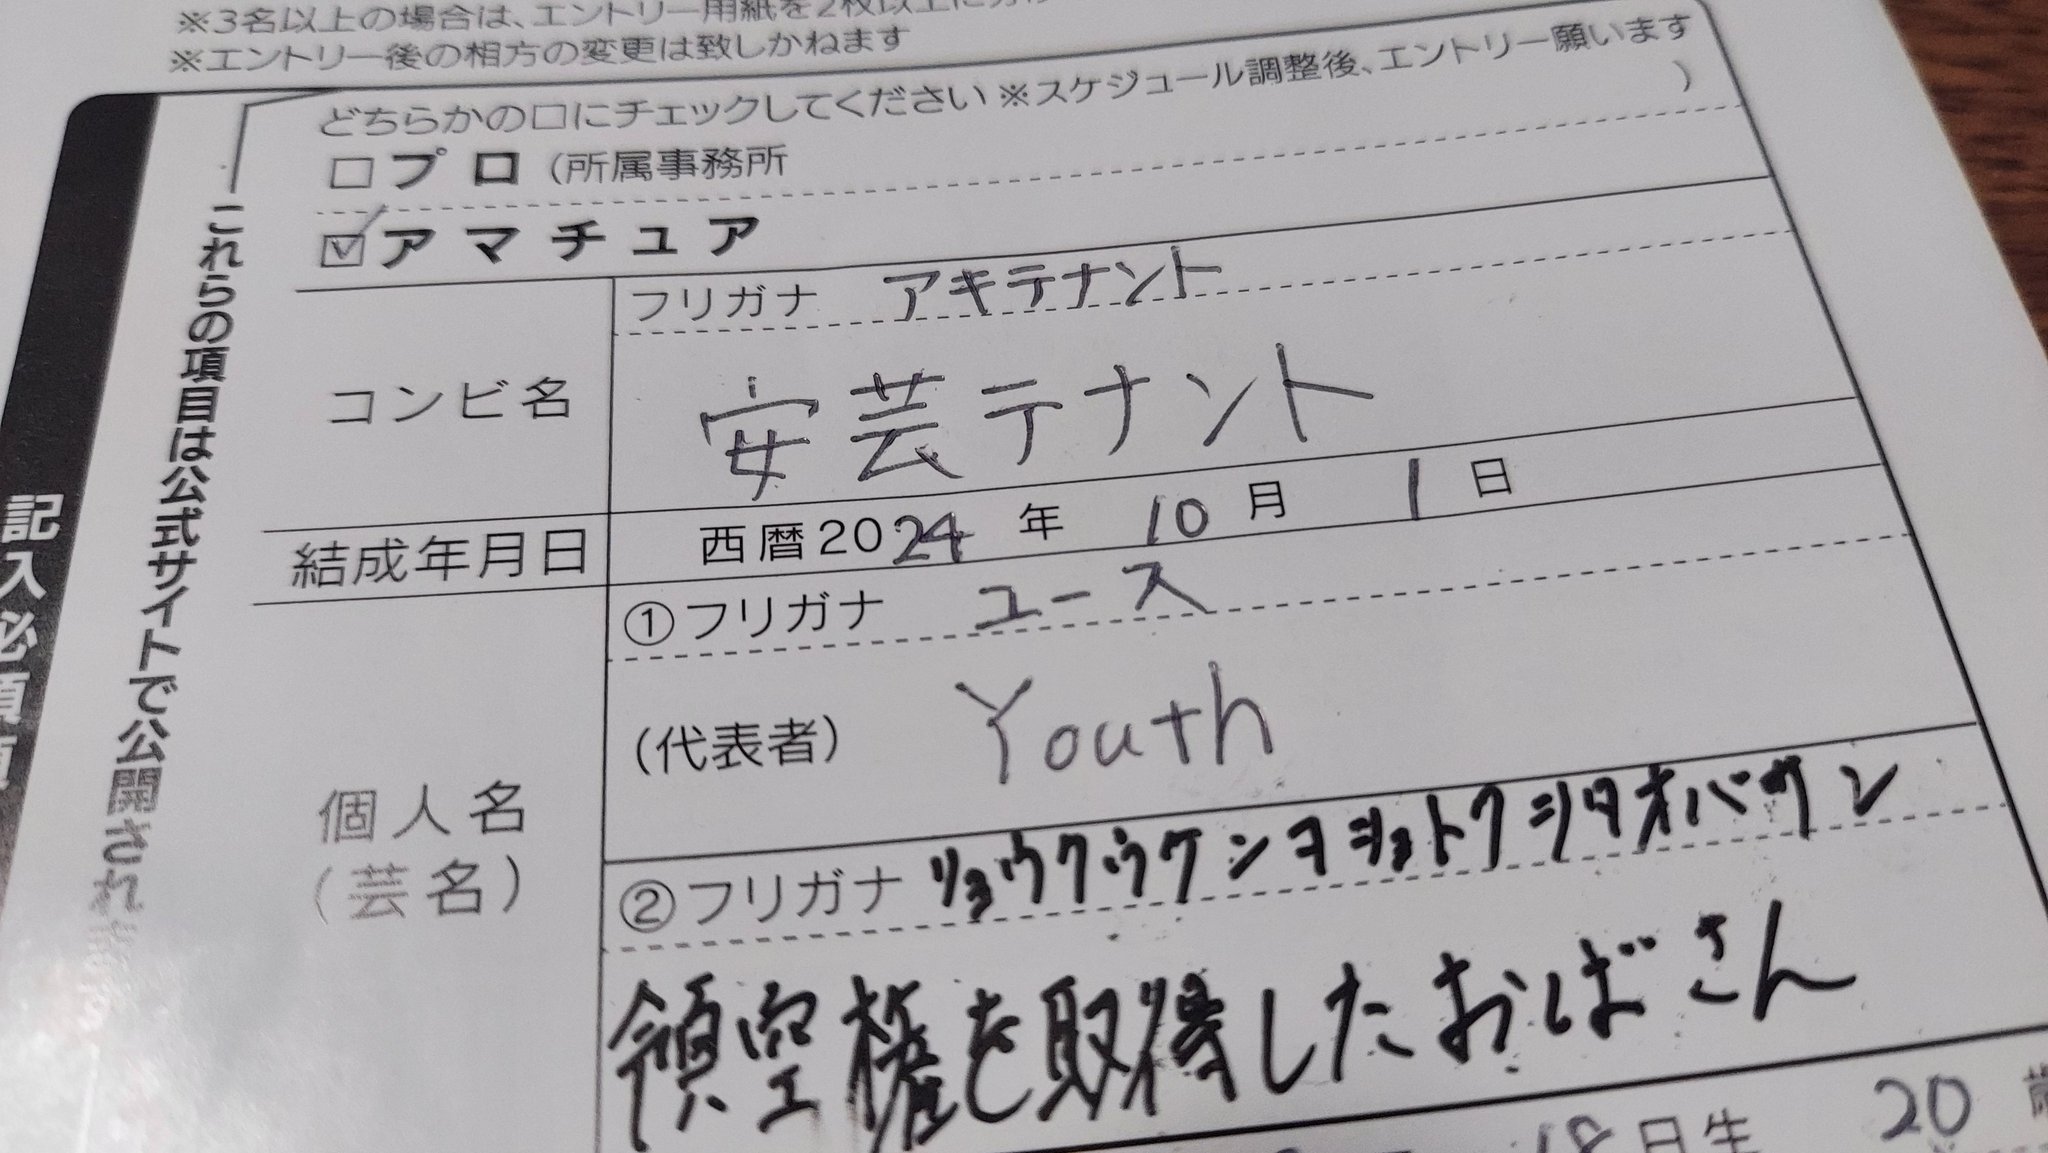 ※3名以上の場合は、エントリー用紙を2枚以上に
※エントリー後の相方の変更は致しかねます
どちらかの口にチェックしてください※スケジュール調整後、エントリー願います
□プロ(所属事務所 )
☑アマチュア
コンビ名
フリガナ アキテナント
安芸テナント
結成年月日 西暦2024年 10月 1日
個人名
(芸名)
①フリガナ ユース
(代表者) Youth
②フリガナ リョウクウケンヲシュトクシタオバサン
領空権を取得したおばさん
18日生 20歳
これらの項目は公式サイトで公開されま
記入必須項